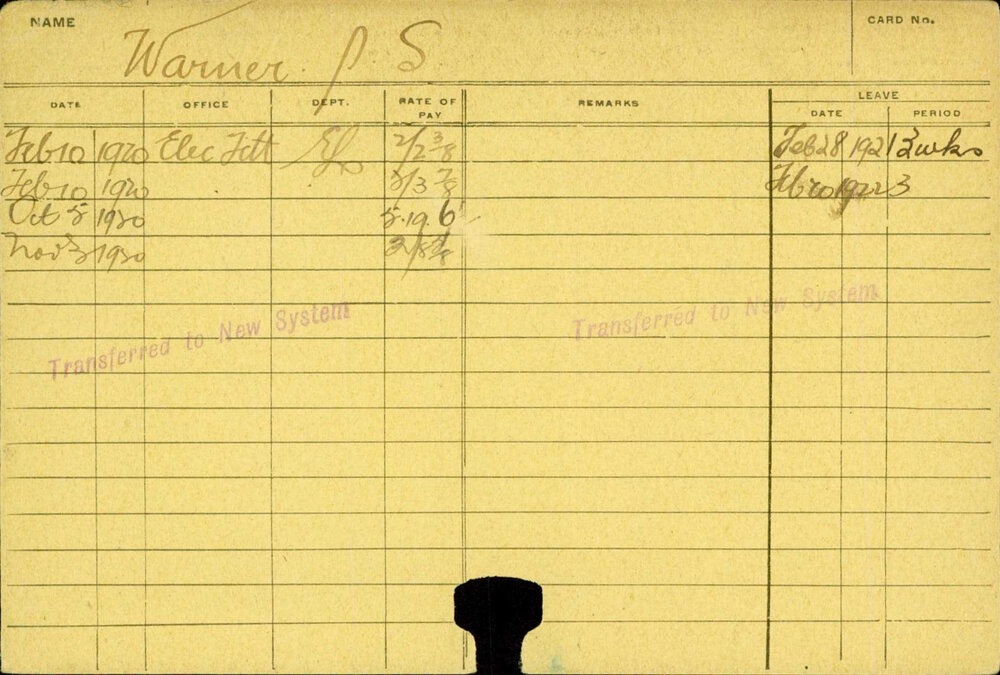 NAME
CARD No.
Warner. P. S.
DATE OFFICE DEPT. RATE OF PAY REMARKS LEAVE
DATE PERIOD
Feb 10 1920 Elec Fitt 2/2 3/8 Feb 28 1921 3 wks
Feb. 10 1920 2/3 7/8 1922 3
Oct 5 1920 5.19.6
Nov 3 1920
Transferred to New System
Transferred to New System